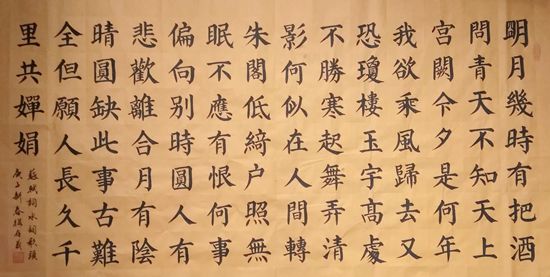 明月幾時有把酒
問青天不知天上
宮闕今夕是何年
我欲乘風歸去又
恐瓊樓玉宇高處
不勝寒起舞弄清
影何似在人間轉
朱閣低綺户照無
眠不應有恨何事
偏向别時圓人有
悲歡離合月有陰
晴圓缺此事古難
全但願人長久千
里共嬋娟
蘇軾詞水調歌頭
庚子新春